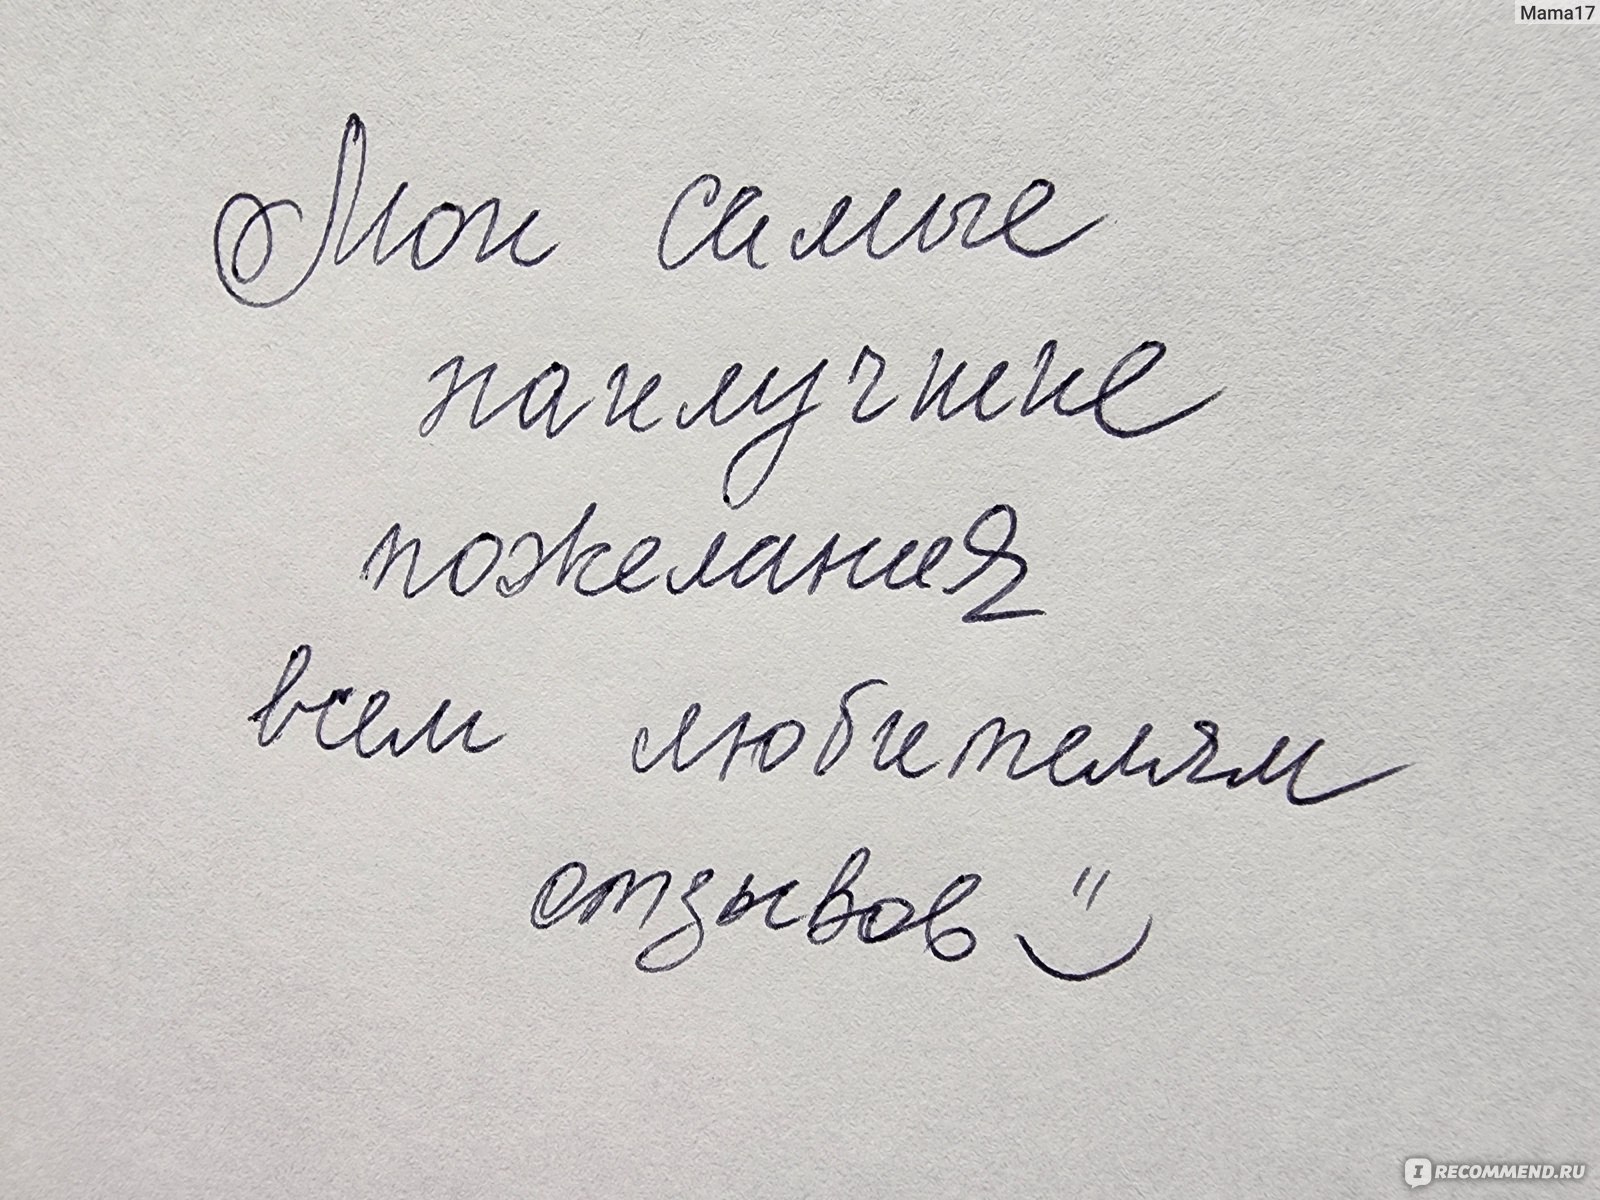 Mama17
Мои самые
наилучшие
пожелания
всем любителям
отзывов
IRECOMMEND.RU